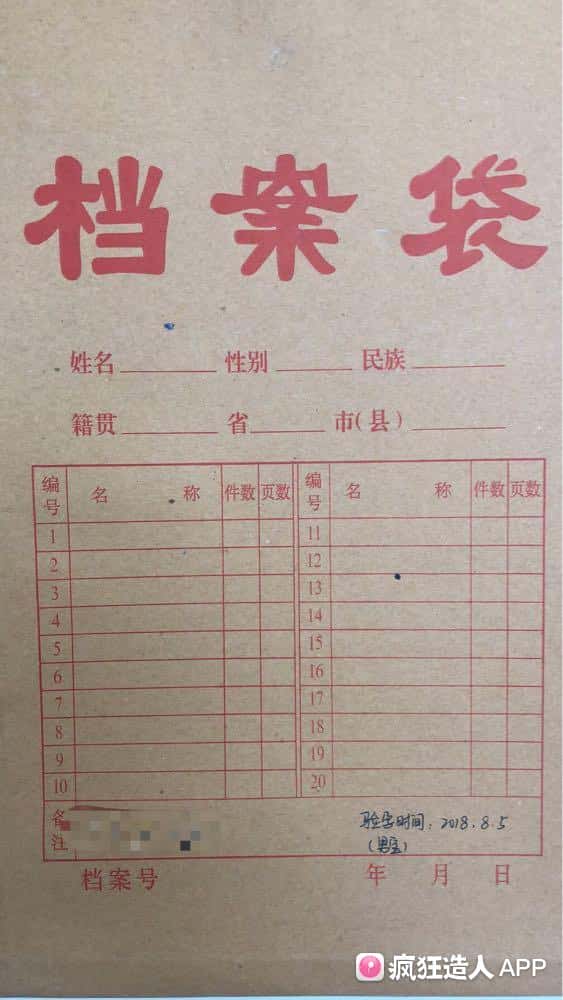 档案袋
姓名 性别 民族
籍贯 省 市(县)
编号 名 称 件数 页数 编号 名 称 件数 页数
1 11
2 12
3 13
4 14
5 15
6 16
7 17
8 18
9 19
10 20
备注 验孕时间：2018.8.5
(男宝)
档案号 年 月 日
疯狂造人 APP